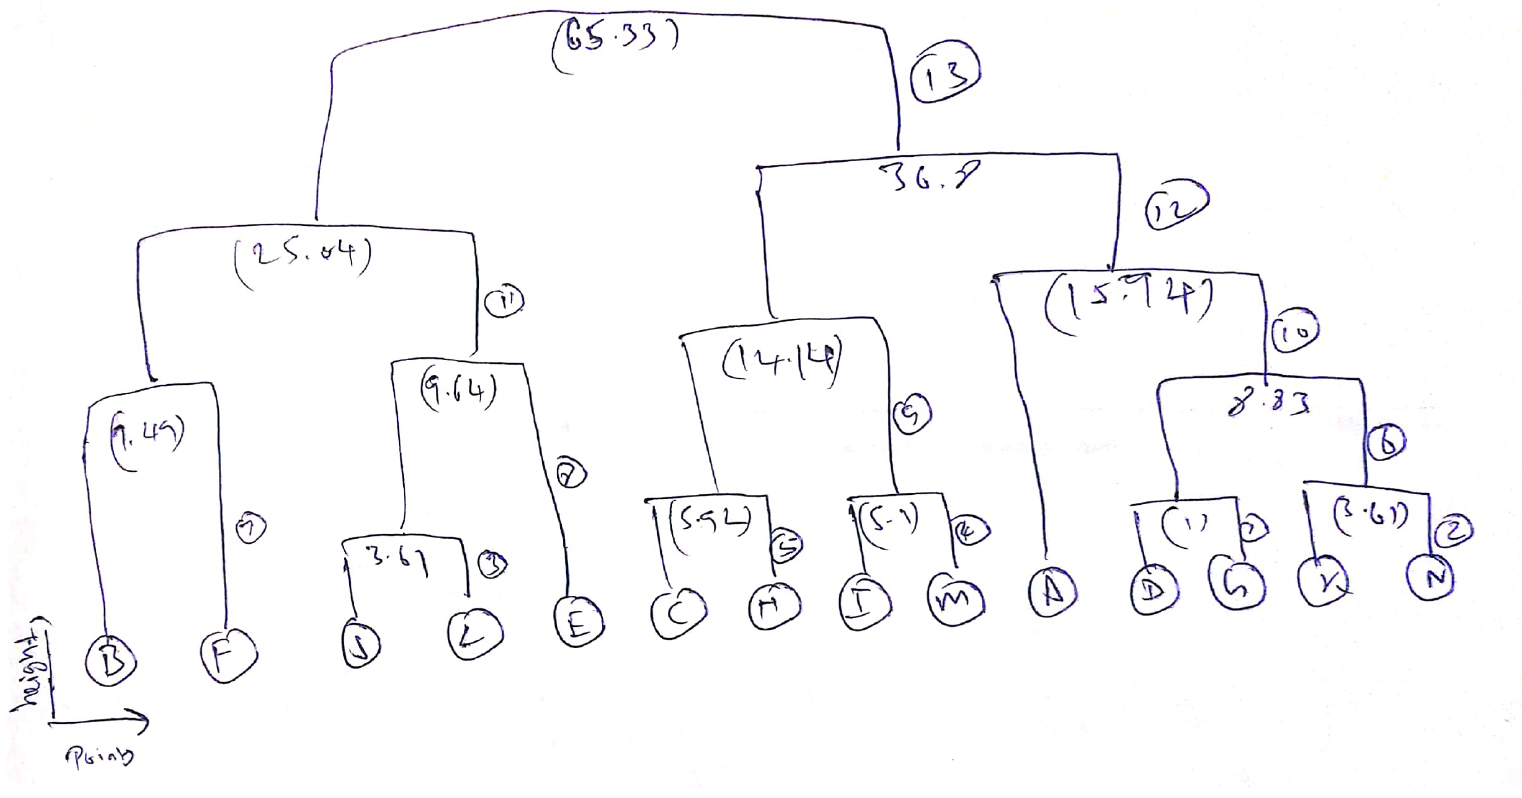 (65.33)
13
36.8
12
(25.04)
11
(15.94)
10
(14.14)
9
(9.64)
8
8.83
6
(9.49)
7
3.61
3
(5.92)
5
(5.1)
4
(1)
1
(3.61)
2
B
F
J
L
E
C
H
I
M
A
D
G
K
N
height
Points